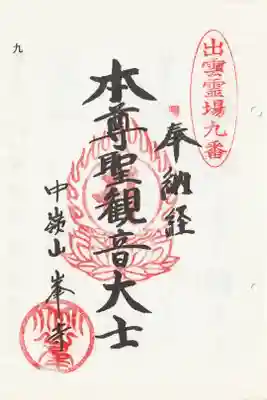 出雲霊場九番
奉納経
本尊聖観音大士
中嶺山 峯寺
九